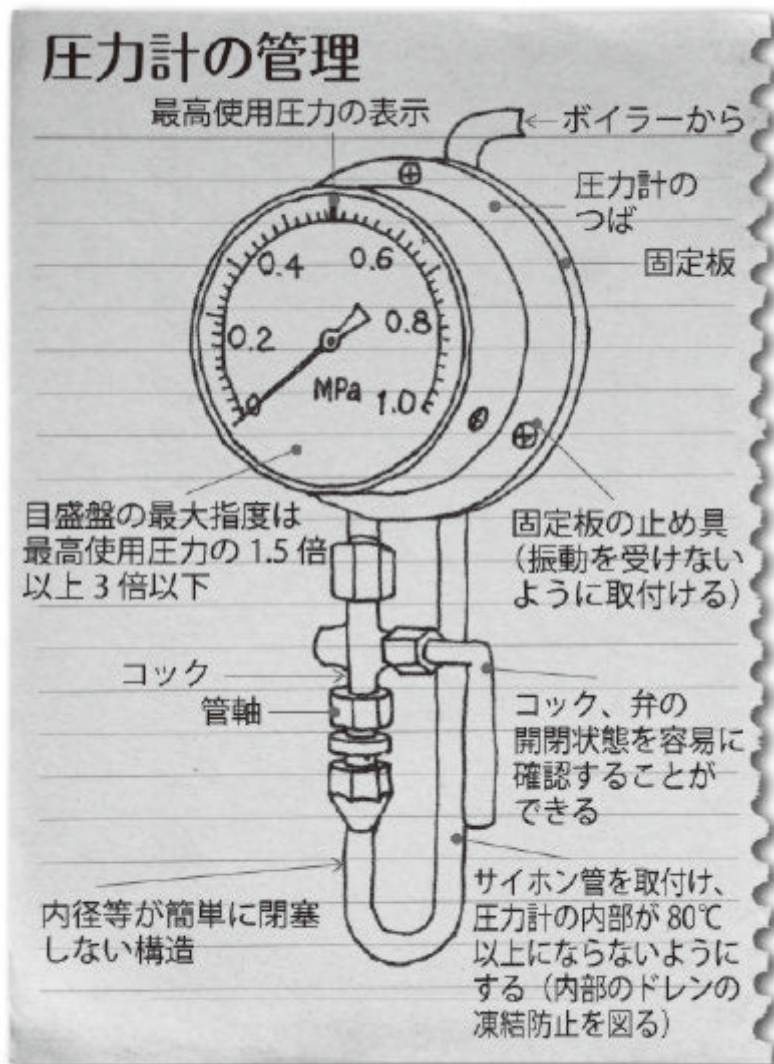 圧力計の管理
最高使用圧力の表示
ボイラーから
圧力計の
つば
固定板
0.4
0.6
0.2
0.8
0
MPa
1.0
目盛盤の最大指度は
最高使用圧力の 1.5 倍
以上 3 倍以下
固定板の止め具
(振動を受けない
ように取付ける)
コック
管軸
コック、弁の
開閉状態を容易に
確認することが
できる
内径等が簡単に閉塞
しない構造
サイホン管を取付け、
圧力計の内部が 80℃
以上にならないように
する (内部のドレンの
凍結防止を図る)